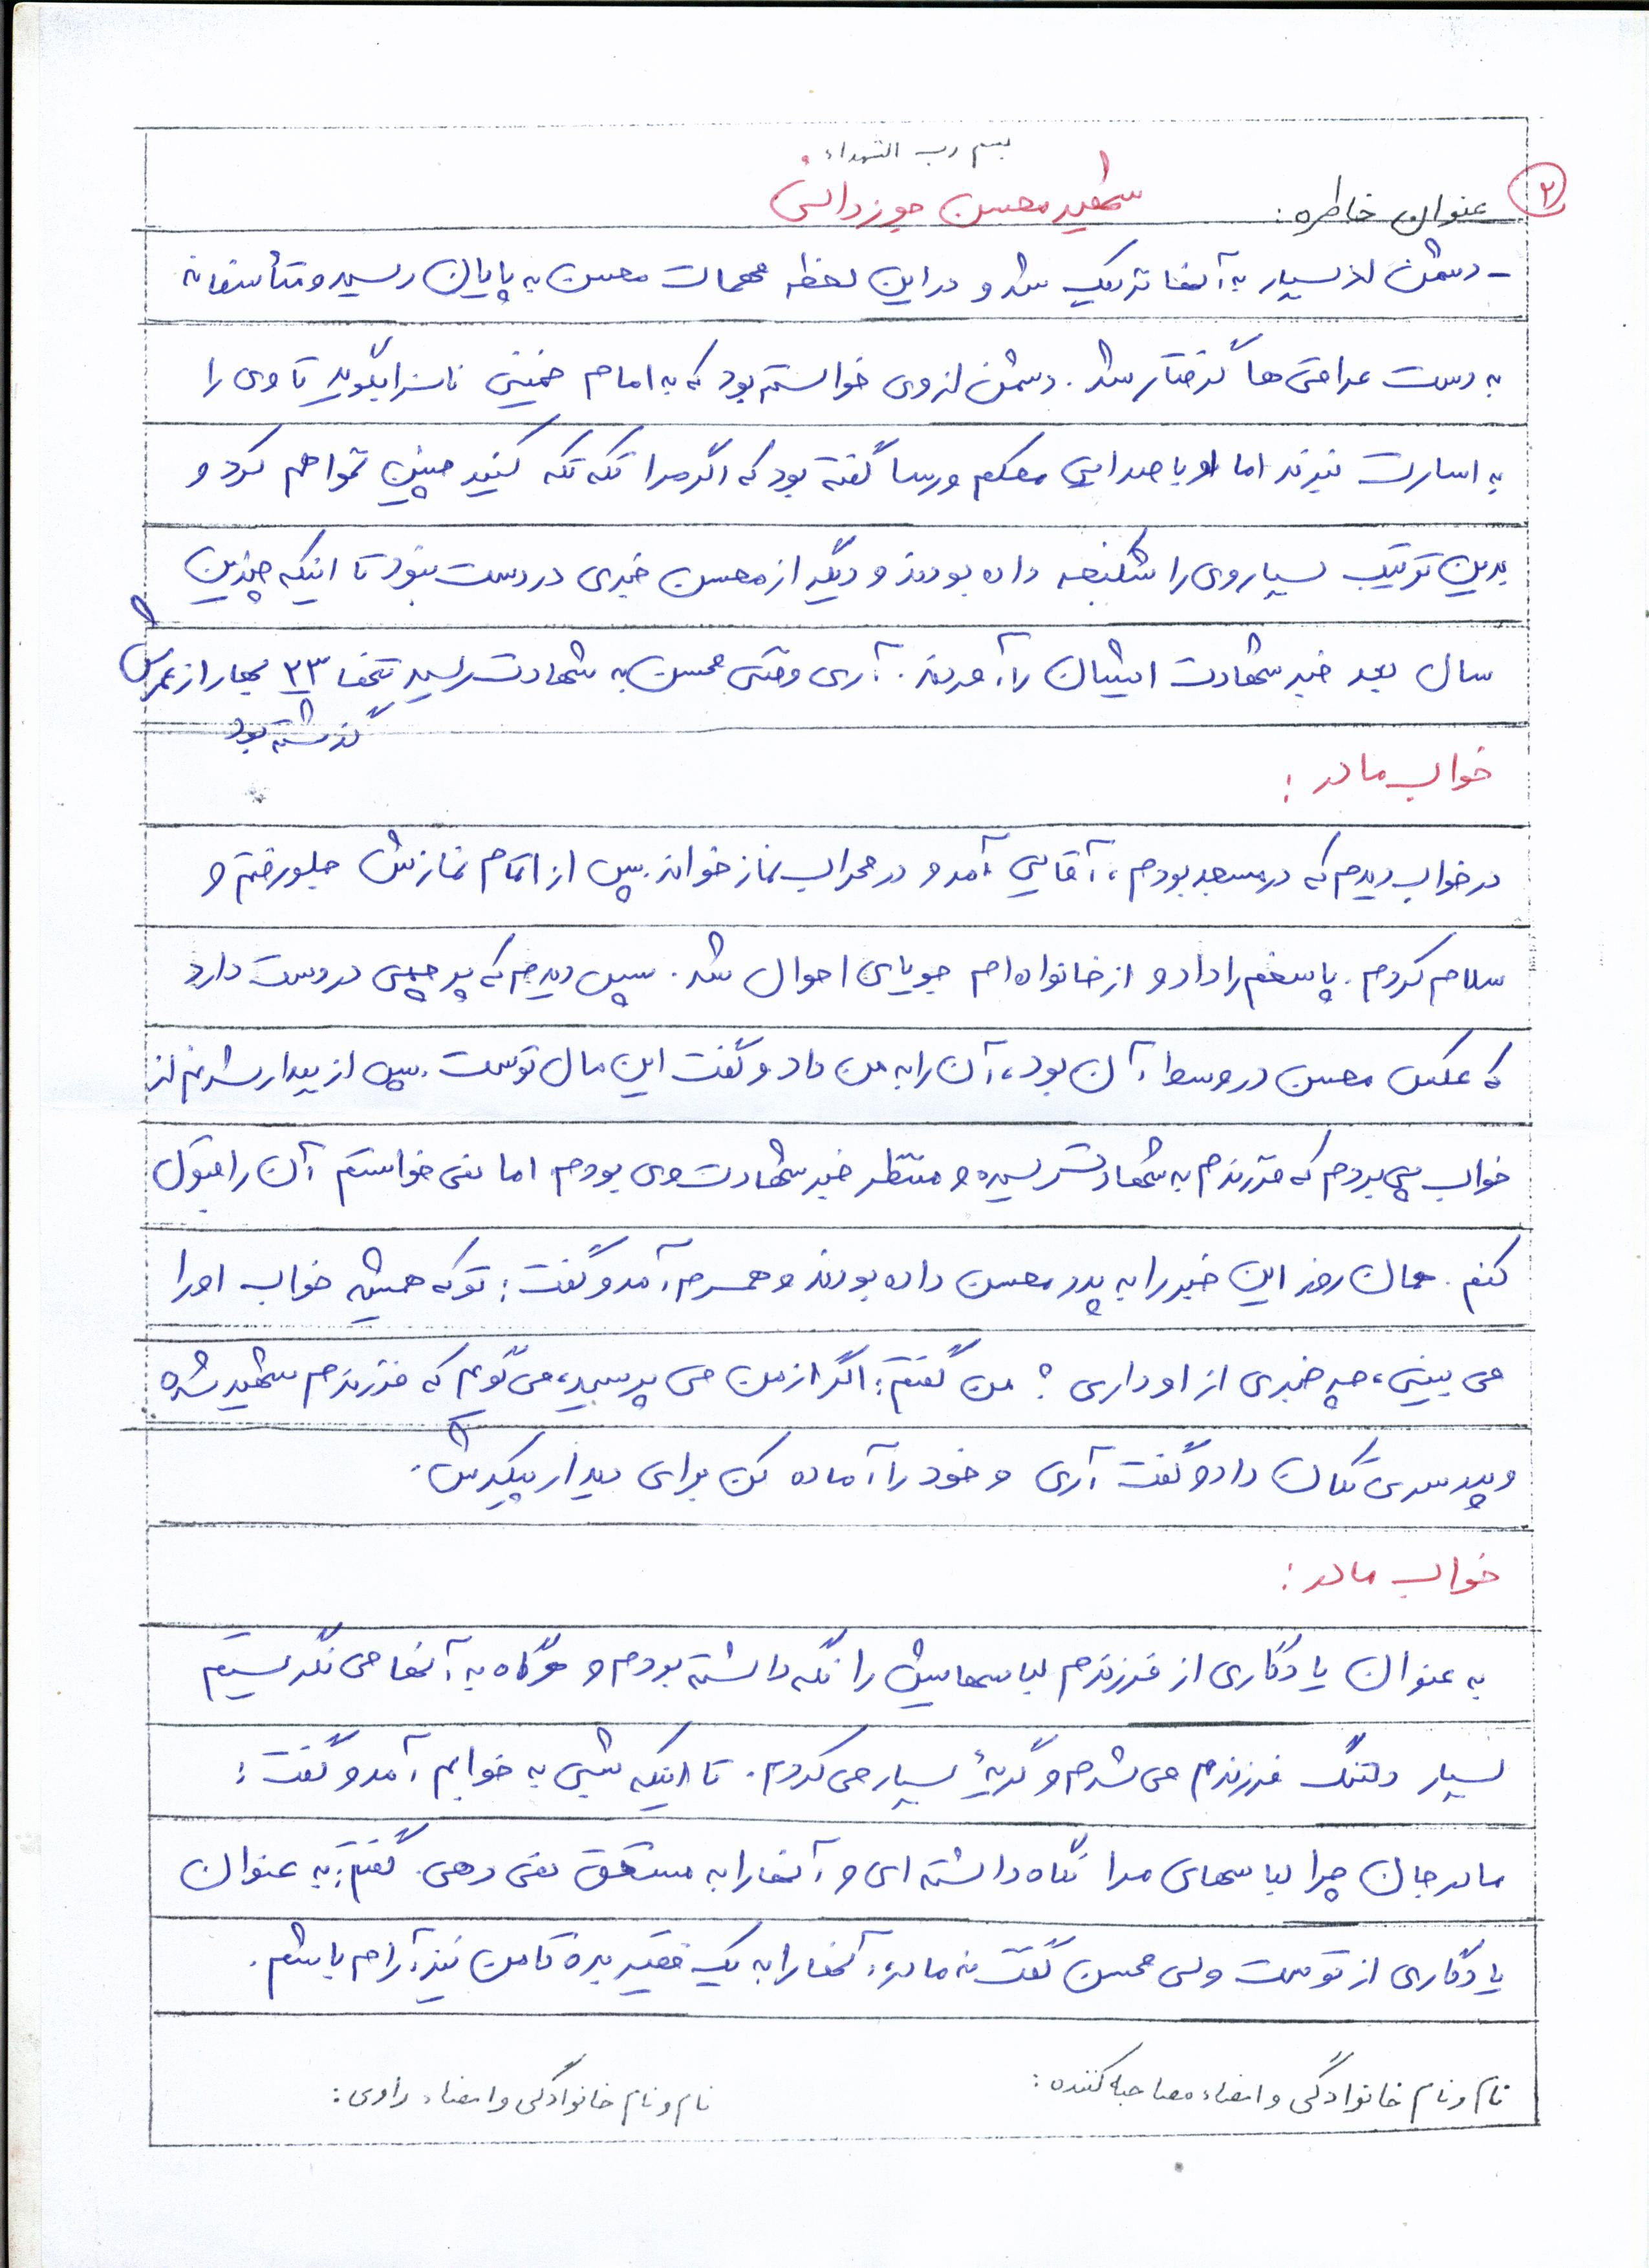 بسم رب الشهداء
۲
عنوان خاطره: شهید محسن جوزدانی
- دشمن لذ بسیار به آنها نزدیک شد و در این لحظه مهمات محسن به پایان رسید و متأسفانه
به دست عراقی ها گرفتار شد. دشمن از وی خواسته بود که به امام خمینی ناسزا بگوید تا وی را
به اسارت نبرند اما او با صدایی محکم و رسا گفته بود که اگر مرا تکه تکه کنید چنین نخواهم کرد و
بدین ترتیب بسیار وی را شکنجه داده بودند و دیگر از محسن خبری در دست نبود تا اینکه چندین
سال بعد خبر شهادت ایشان را آوردند. آری وقتی محسن به شهادت رسید تنها ۲۳ بهار از عمرش
گذشته بود
خواب مادر:
در خواب دیدم که در مسجد بودم، آقایی آمد و در محراب نماز خواند. پس از اتمام نمازش جلو رفتم و
سلام کردم. پاسخم را داد و از خانواده ام جویای احوال شد. سپس دیدم که پرچمی در دست دارد
که عکس محسن در وسط آن بود، آن را به من داد و گفت این مال توست. پس از بیدار شدنم از
خواب پی بردم که فرزندم به شهادت رسیده و منتظر خبر شهادت وی بودم اما نمی خواستم آن را قبول
کنم. همان روز این خبر را به پدر محسن داده بودند و همسرم آمد و گفت: تو که همیشه خواب او را
می بینی، چه خبری از او داری؟ من گفتم: اگر از من می پرسید، می گویم که فرزندم شهید شده
و پدر سری تکان داد و گفت آری و خود را آماده کن برای دیدار پیکرش.
خواب مادر:
به عنوان یادگاری از فرزندم لباسهایش را نگه داشته بودم و هرگاه به آنها می نگریستم
بسیار دلتنگ فرزندم می شدم و گریۀ بسیار می کردم. تا اینکه شبی به خوابم آمد و گفت:
مادر جان چرا لباسهای مرا نگاه داشته ای و آنها را به مستحق نمی دهی. گفتم: به عنوان
یادگاری از توست ولی محسن گفت نه مادر، آنها را به یک فقیر بده تا من نیز آرام باشم.
نام و نام خانوادگی و امضاء مصاحبه کننده: نام و نام خانوادگی و امضاء راوی: